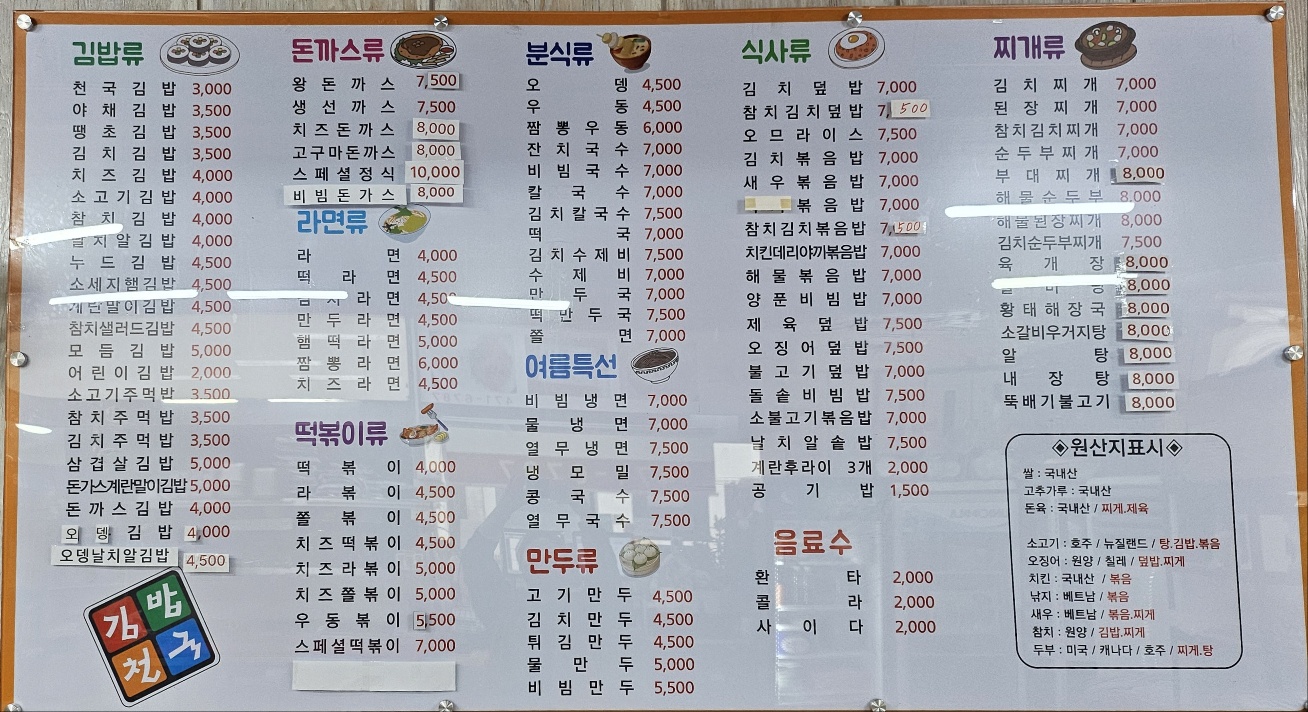 김밥류
천국김밥 3,000
야채김밥 3,500
땡초김밥 3,500
김치김밥 3,500
치즈김밥 4,000
소고기김밥 4,000
참치김밥 4,000
날치알김밥 4,000
누드김밥 4,500
소세지햄김밥 4,500
계란말이김밥 4,500
참치샐러드김밥 4,500
모듬김밥 5,000
어린이김밥 2,000
소고기주먹밥 3,500
참치주먹밥 3,500
김치주먹밥 3,500
삼겹살김밥 5,000
돈가스계란말이김밥 5,000
돈까스김밥 4,000
오뎅김밥 4,000
오뎅날치알김밥 4,500
김밥천국
돈까스류
왕돈까스 7,500
생선까스 7,500
치즈돈까스 8,000
고구마돈까스 8,000
스페셜정식 10,000
비빔돈가스 8,000
라면류
라면 4,000
떡라면 4,500
라면 4,500
만두라면 4,500
햄떡라면 5,000
짬뽕라면 6,000
치즈라면 4,500
떡볶이류
떡볶이 4,000
라볶이 4,500
쫄볶이 4,500
치즈떡볶이 4,500
치즈라볶이 5,000
치즈쫄볶이 5,000
우동볶이 5,500
스페셜떡볶이 7,000
분식류
오뎅 4,500
우동 4,500
짬뽕우동 6,000
잔치국수 7,000
비빔국수 7,000
칼국수 7,000
김치칼국수 7,500
떡국 7,000
김치수제비 7,500
수제비 7,000
만두국 7,000
떡만두국 7,500
쫄면 7,000
여름특선
비빔냉면 7,000
물냉면 7,000
열무냉면 7,500
냉모밀 7,500
콩국수 7,500
열무국수 7,500
만두류
고기만두 4,500
김치만두 4,500
튀김만두 4,500
물만두 5,000
비빔만두 5,500
식사류
김치덮밥 7,000
참치김치덮밥 7,500
오므라이스 7,500
김치볶음밥 7,000
새우볶음밥 7,000
볶음밥 7,000
참치김치볶음밥 7,500
치킨데리야끼볶음밥 7,000
해물볶음밥 7,000
양푼비빔밥 7,000
제육덮밥 7,500
오징어덮밥 7,500
불고기덮밥 7,500
돌솥비빔밥 7,500
소불고기볶음밥 7,000
날치알솥밥 7,500
계란후라이 3개 2,000
공기밥 1,500
음료수
환타 2,000
콜라 2,000
사이다 2,000
찌개류
김치찌개 7,000
된장찌개 7,000
참치김치찌개 7,000
순두부찌개 7,000
부대찌개 8,000
해물순두부 8,000
해물된장찌개 8,000
김치순두부찌개 7,500
육개장 8,000
8,000
황태해장국 8,000
소갈비우거지탕 8,000
알탕 8,000
내장탕 8,000
뚝배기불고기 8,000
◈원산지표시◈
쌀 : 국내산
고추가루 : 국내산
돈육 : 국내산 / 찌게.제육
소고기 : 호주 / 뉴질랜드 / 탕.김밥.볶음
오징어 : 원양 / 칠레 / 덮밥.찌게
치킨 : 국내산 / 볶음
낚지 : 베트남 / 볶음
새우 : 베트남 / 볶음.찌게
참치 : 원양 / 김밥.찌게
두부 : 미국 / 캐나다 / 호주 / 찌게.탕